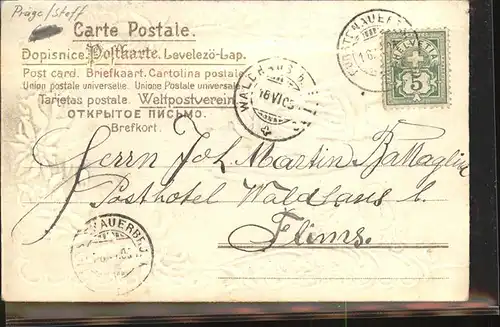 Präge/Stoff
Carte Postale.
Dopisnice. Postkarte. Levelező-Lap.
Post card. Briefkaart. Cartolina postale
Union postale universelle. Unione Postale universale
Tarjetas postale. Weltpostverein
ОТКРЫТОЕ ПИСЬМО.
Brefkort.
HELVETIA
5
16 VI 05
Herrn Joh. Martin Battaglia
Posthotel Waldhaus b.
Flims.